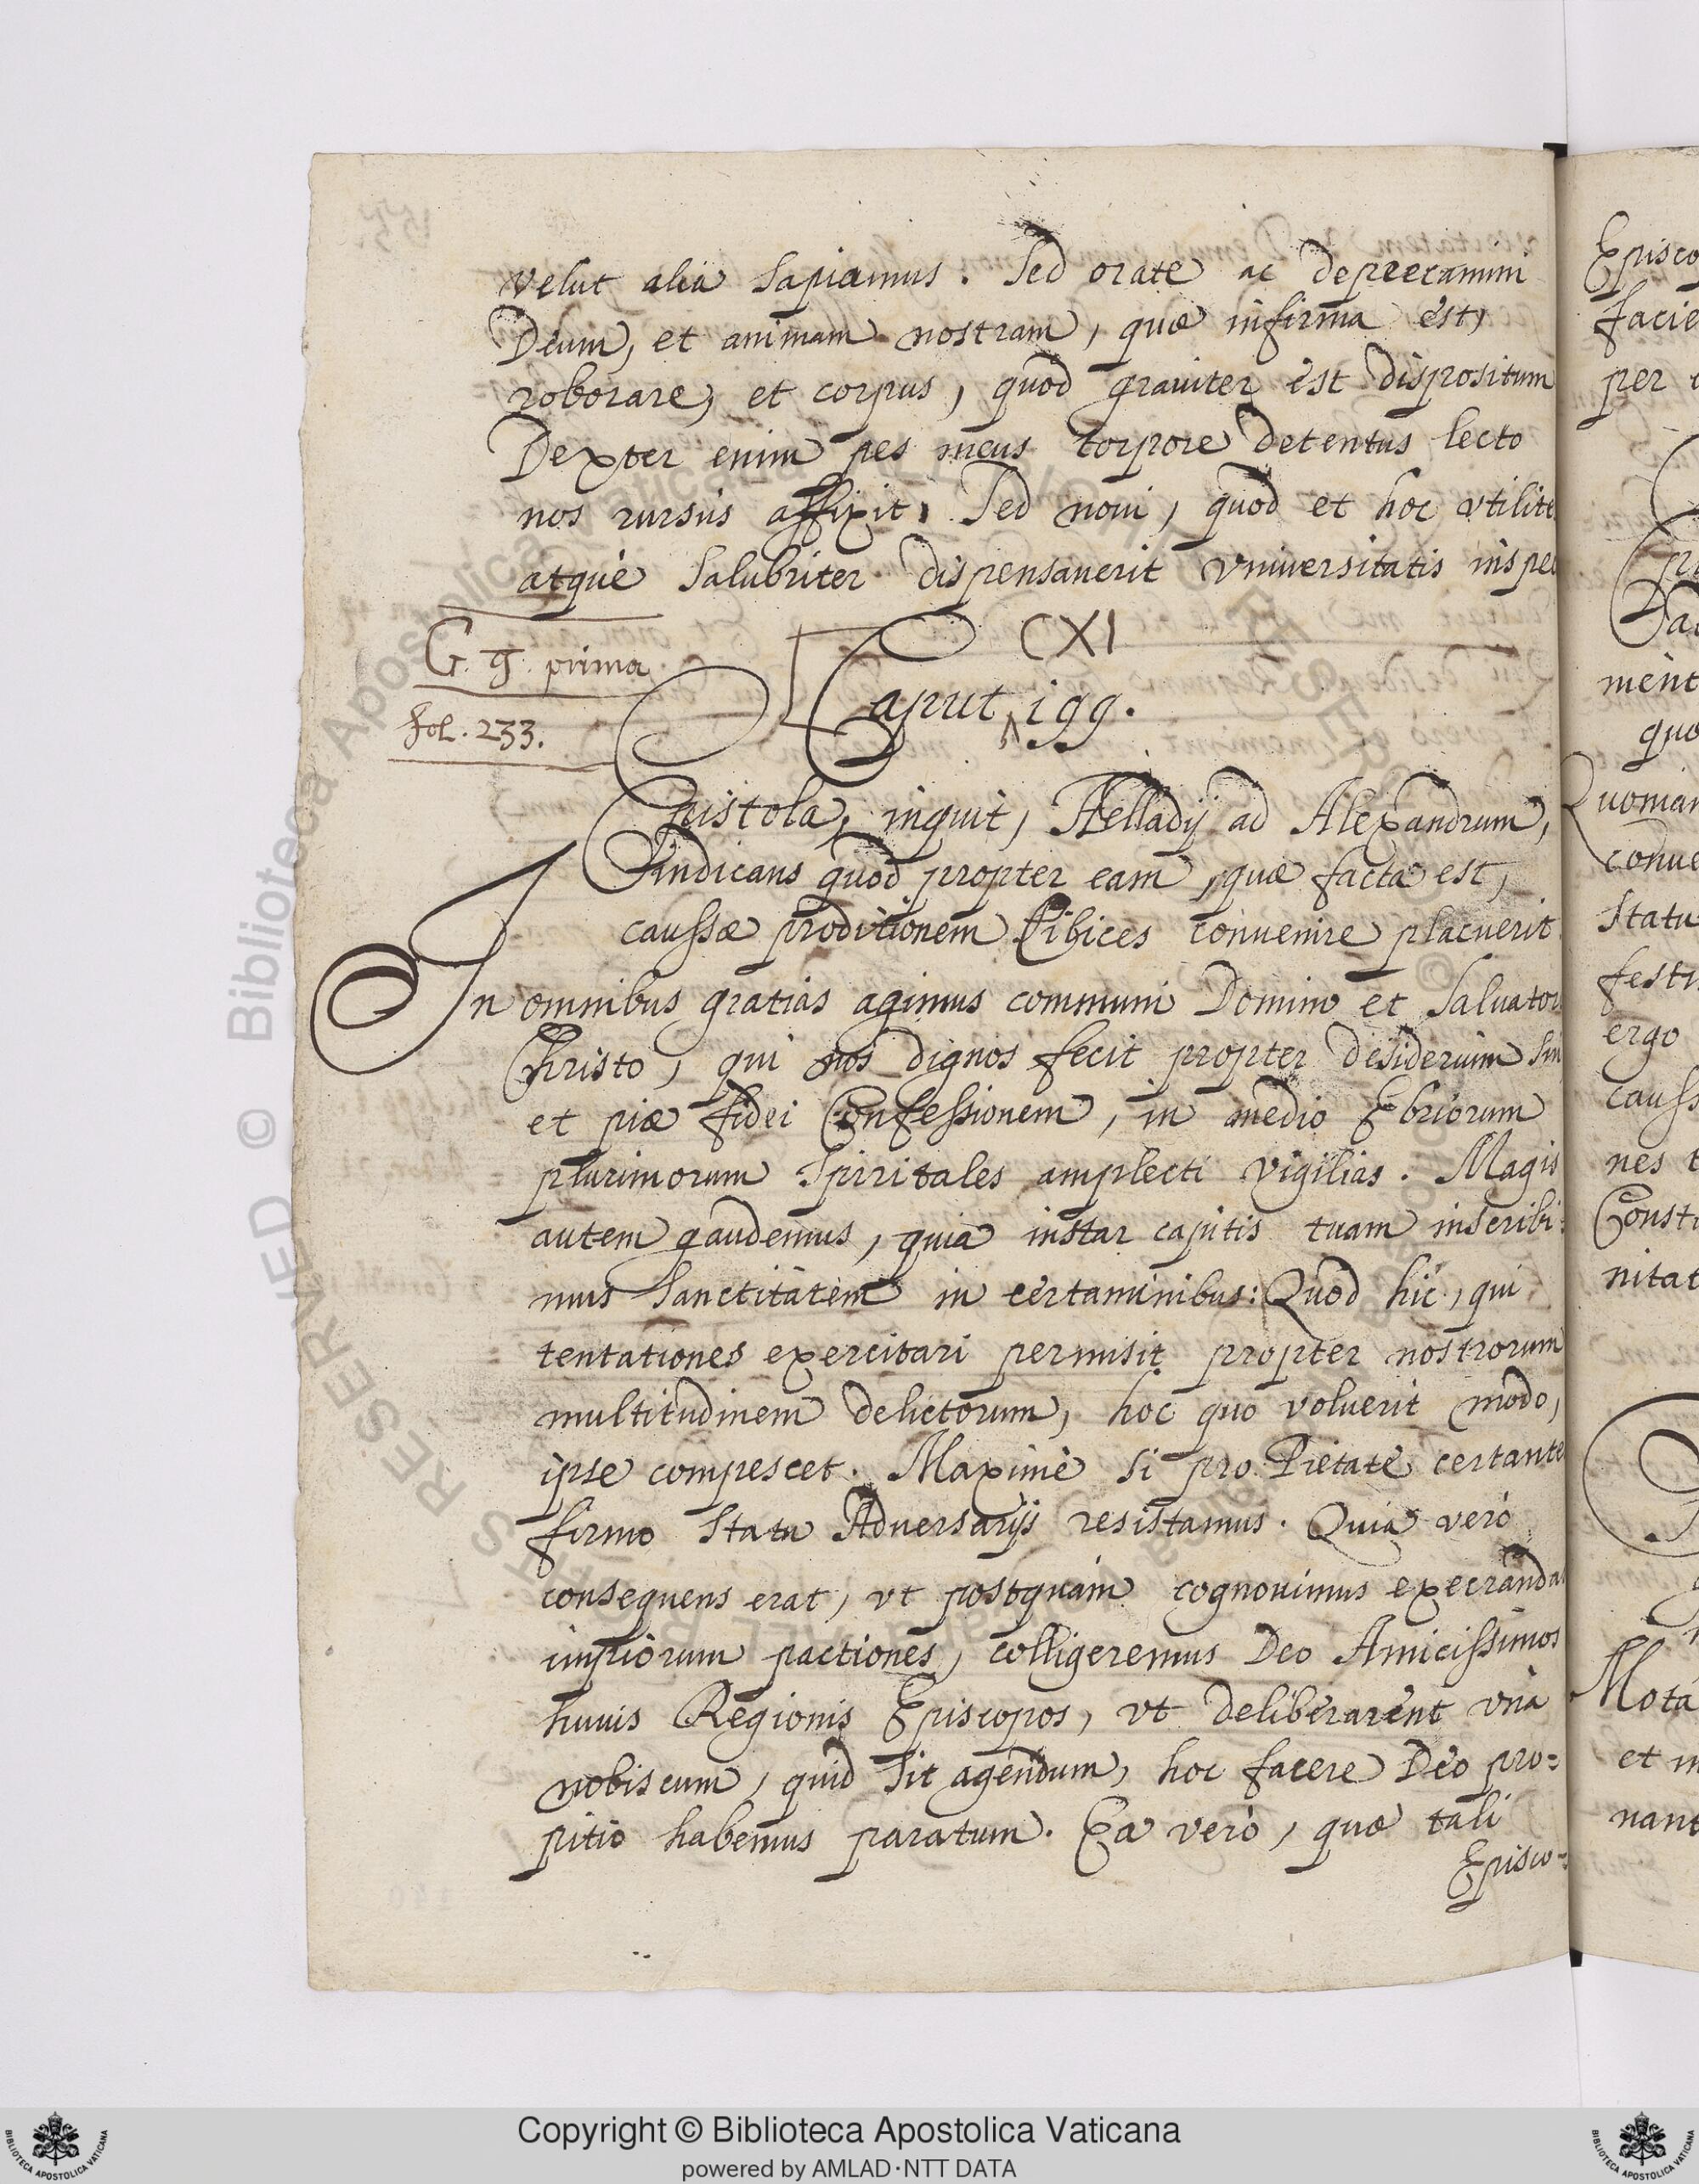 velut alia sapiamus. Sed orate ac deprecamini
Deum, et animam nostram, quæ infirma est,
roborare, et corpus, quod grauiter est dispositum
Dexter enim pes meus torpore detentus lecto
nos rursus affixit. Sed noui, quod et hoc vtilite
atque salubriter dispensauerit vniuersitatis inspe
G. g. prima
fol. 233.
CXI
Caput 199.
Epistola, inquit, Helladij ad Alexandrum,
indicans quod propter eam, quæ facta est,
caussæ proditionem Cilices conuenire placuerit
In omnibus gratias agimus communi Domino et Saluator
Christo, qui nos dignos fecit propter desiderium sin
et piæ fidei Confessionem, in medio Ebriorum
plurimorum spiritales amplecti vigilias. Magis
autem gaudemus, quia instar capitis tuam inscribi:
mus sanctitatem in certaminibus: Quod hic, qui
tentationes exercitari permisit propter nostrorum
multitudinem delictorum, hoc quo voluerit modo,
ipse compescet. Maximè si pro Pietate certante
firmo statu Aduersarijs resistamus. Quia verò
consequens erat, vt postquam cognouimus execranda
impiorum pactiones, colligeremus Deo Amicissimos
huius Regionis Episcopos, vt deliberarent vnà
nobiscum, quid sit agendum, hoc facere Deo pro=
pitio habemus paratum. Ea verò, quæ tali
Episco=
Episco
facie
per
ment
quo
Quoniam
conue
statu
festi
ergo
causs
nes t
Consti
nitat
Mota
et m
nant
RESERVED © Biblioteca Apostolica Vaticana
Copyright © Biblioteca Apostolica Vaticana
powered by AMLAD·NTT DATA
BIBLIOTECA APOSTOLICA VATICANA
BIBLIOTECA APOSTOLICA VATICANA